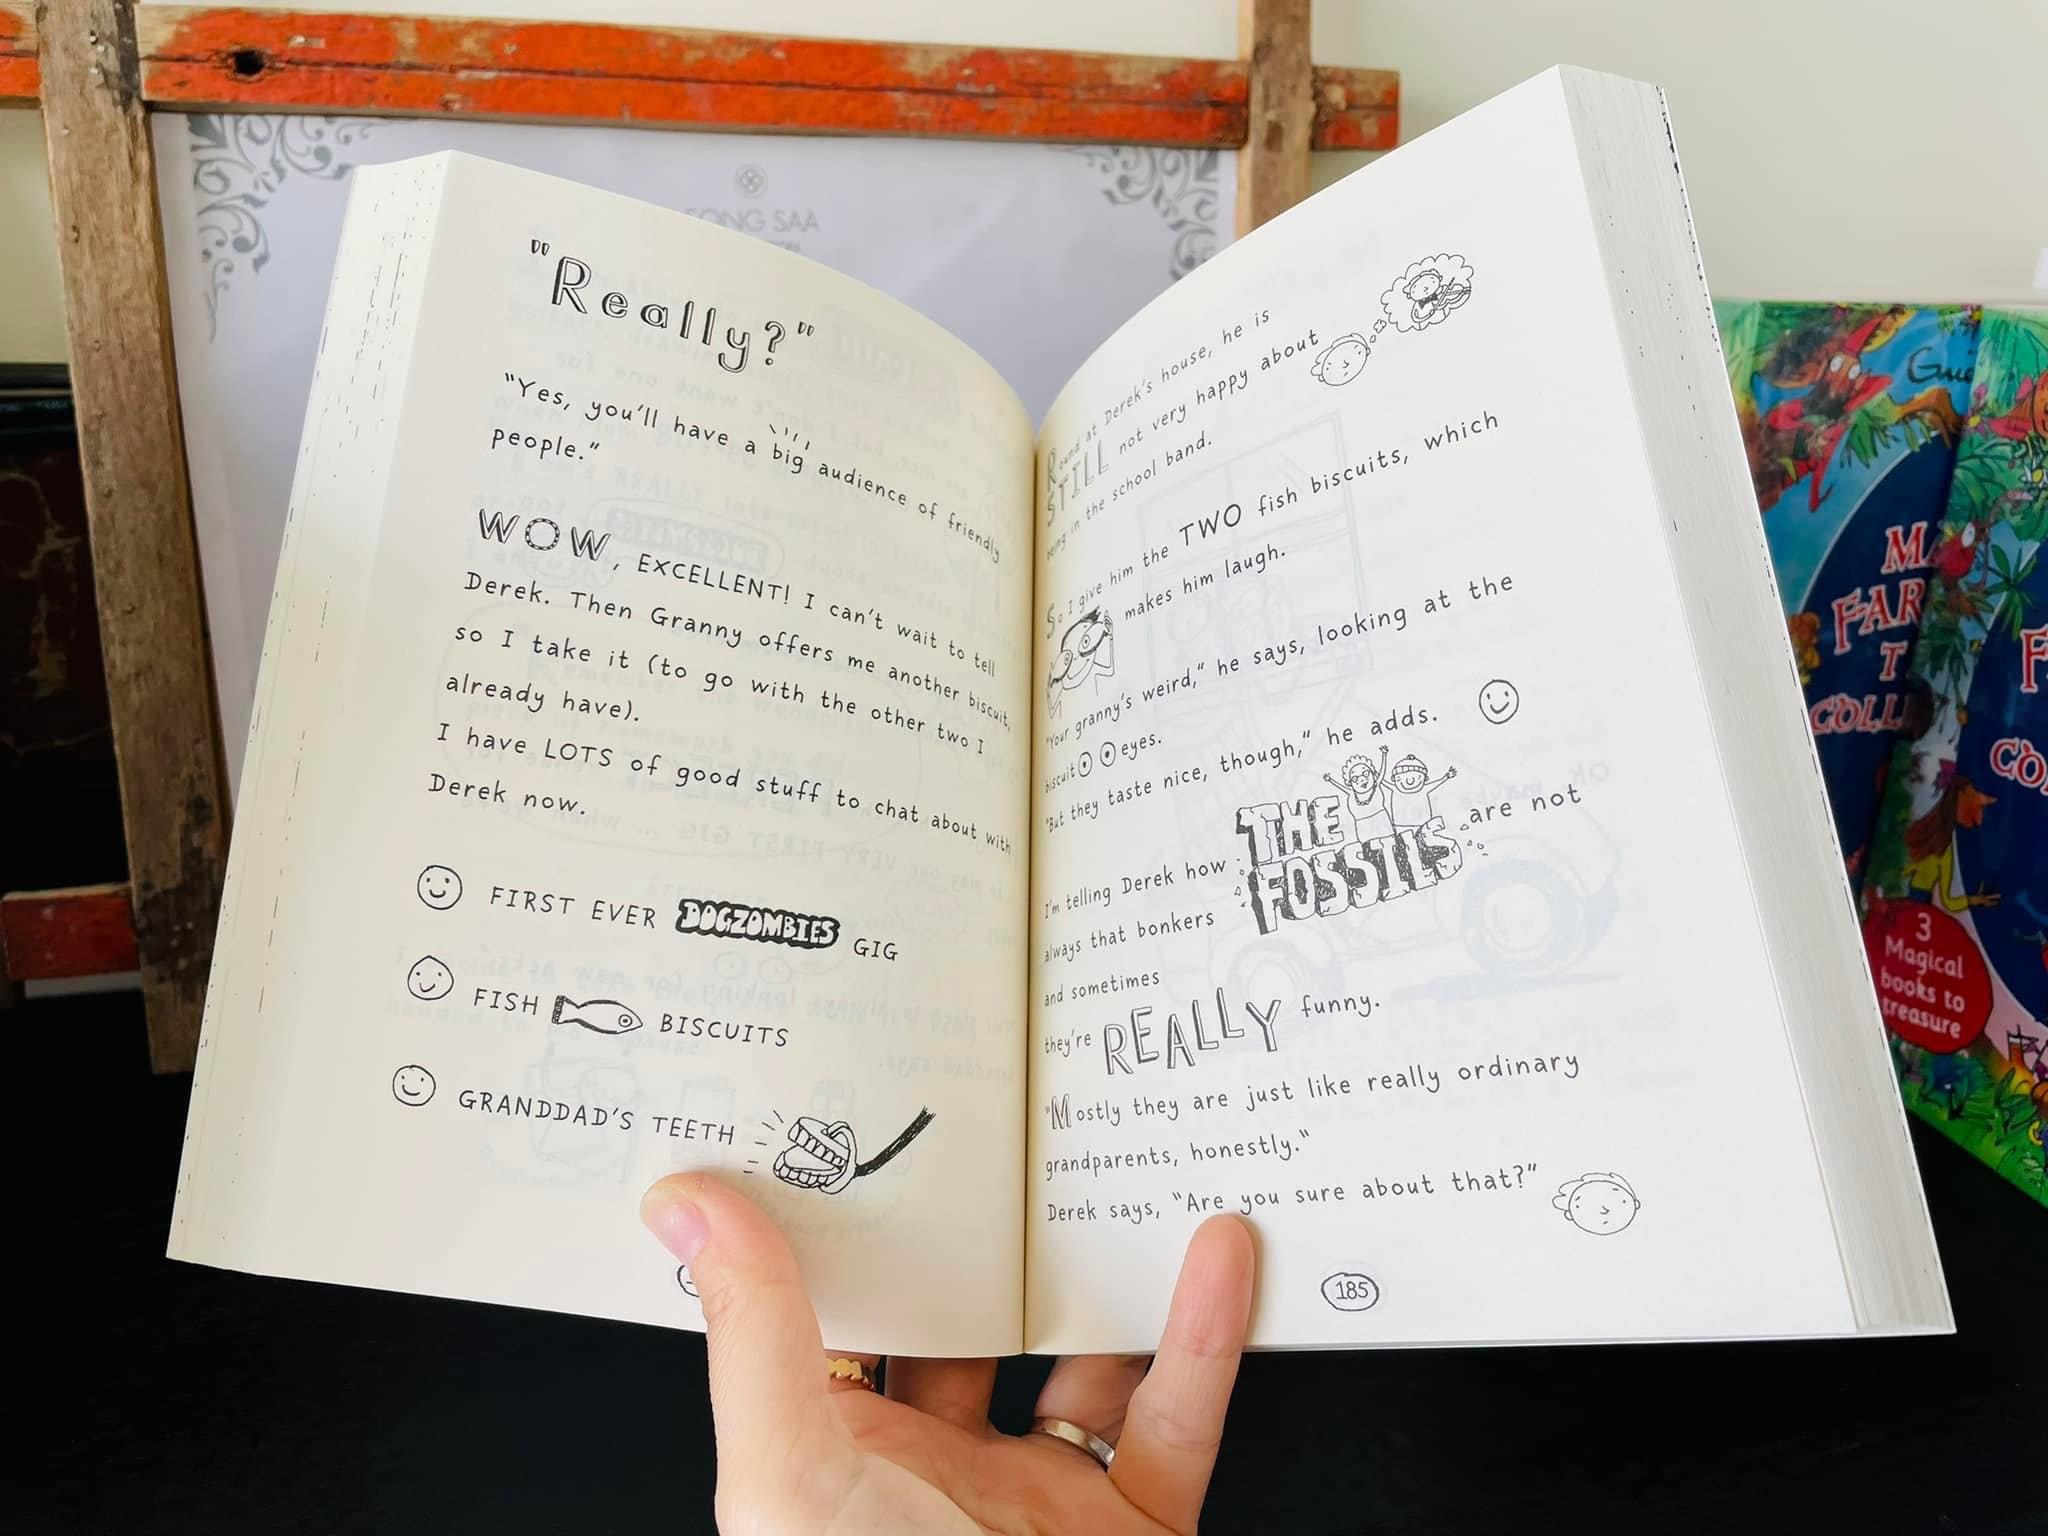 "Really?"
"Yes, you'll have a big audience of friendly
people."
WOW, EXCELLENT! I can't wait to tell
Derek. Then Granny offers me another biscuit,
so I take it (to go with the other two I
already have).
I have LOTS of good stuff to chat about with
Derek now.
FIRST EVER DOGZOMBIES GIG
FISH BISCUITS
GRANDDAD'S TEETH
Round at Derek's house, he is
STILL not very happy about
being in the school band.
So I give him the TWO fish biscuits, which
makes him laugh.
"Your granny's weird," he says, looking at the
biscuit eyes.
"But they taste nice, though," he adds.
I'm telling Derek how THE FOSSILS are not
always that bonkers
and sometimes
they're REALLY funny.
"Mostly they are just like really ordinary
grandparents, honestly."
Derek says, "Are you sure about that?"
185
SONG SAA
3
Magical
books to
treasure